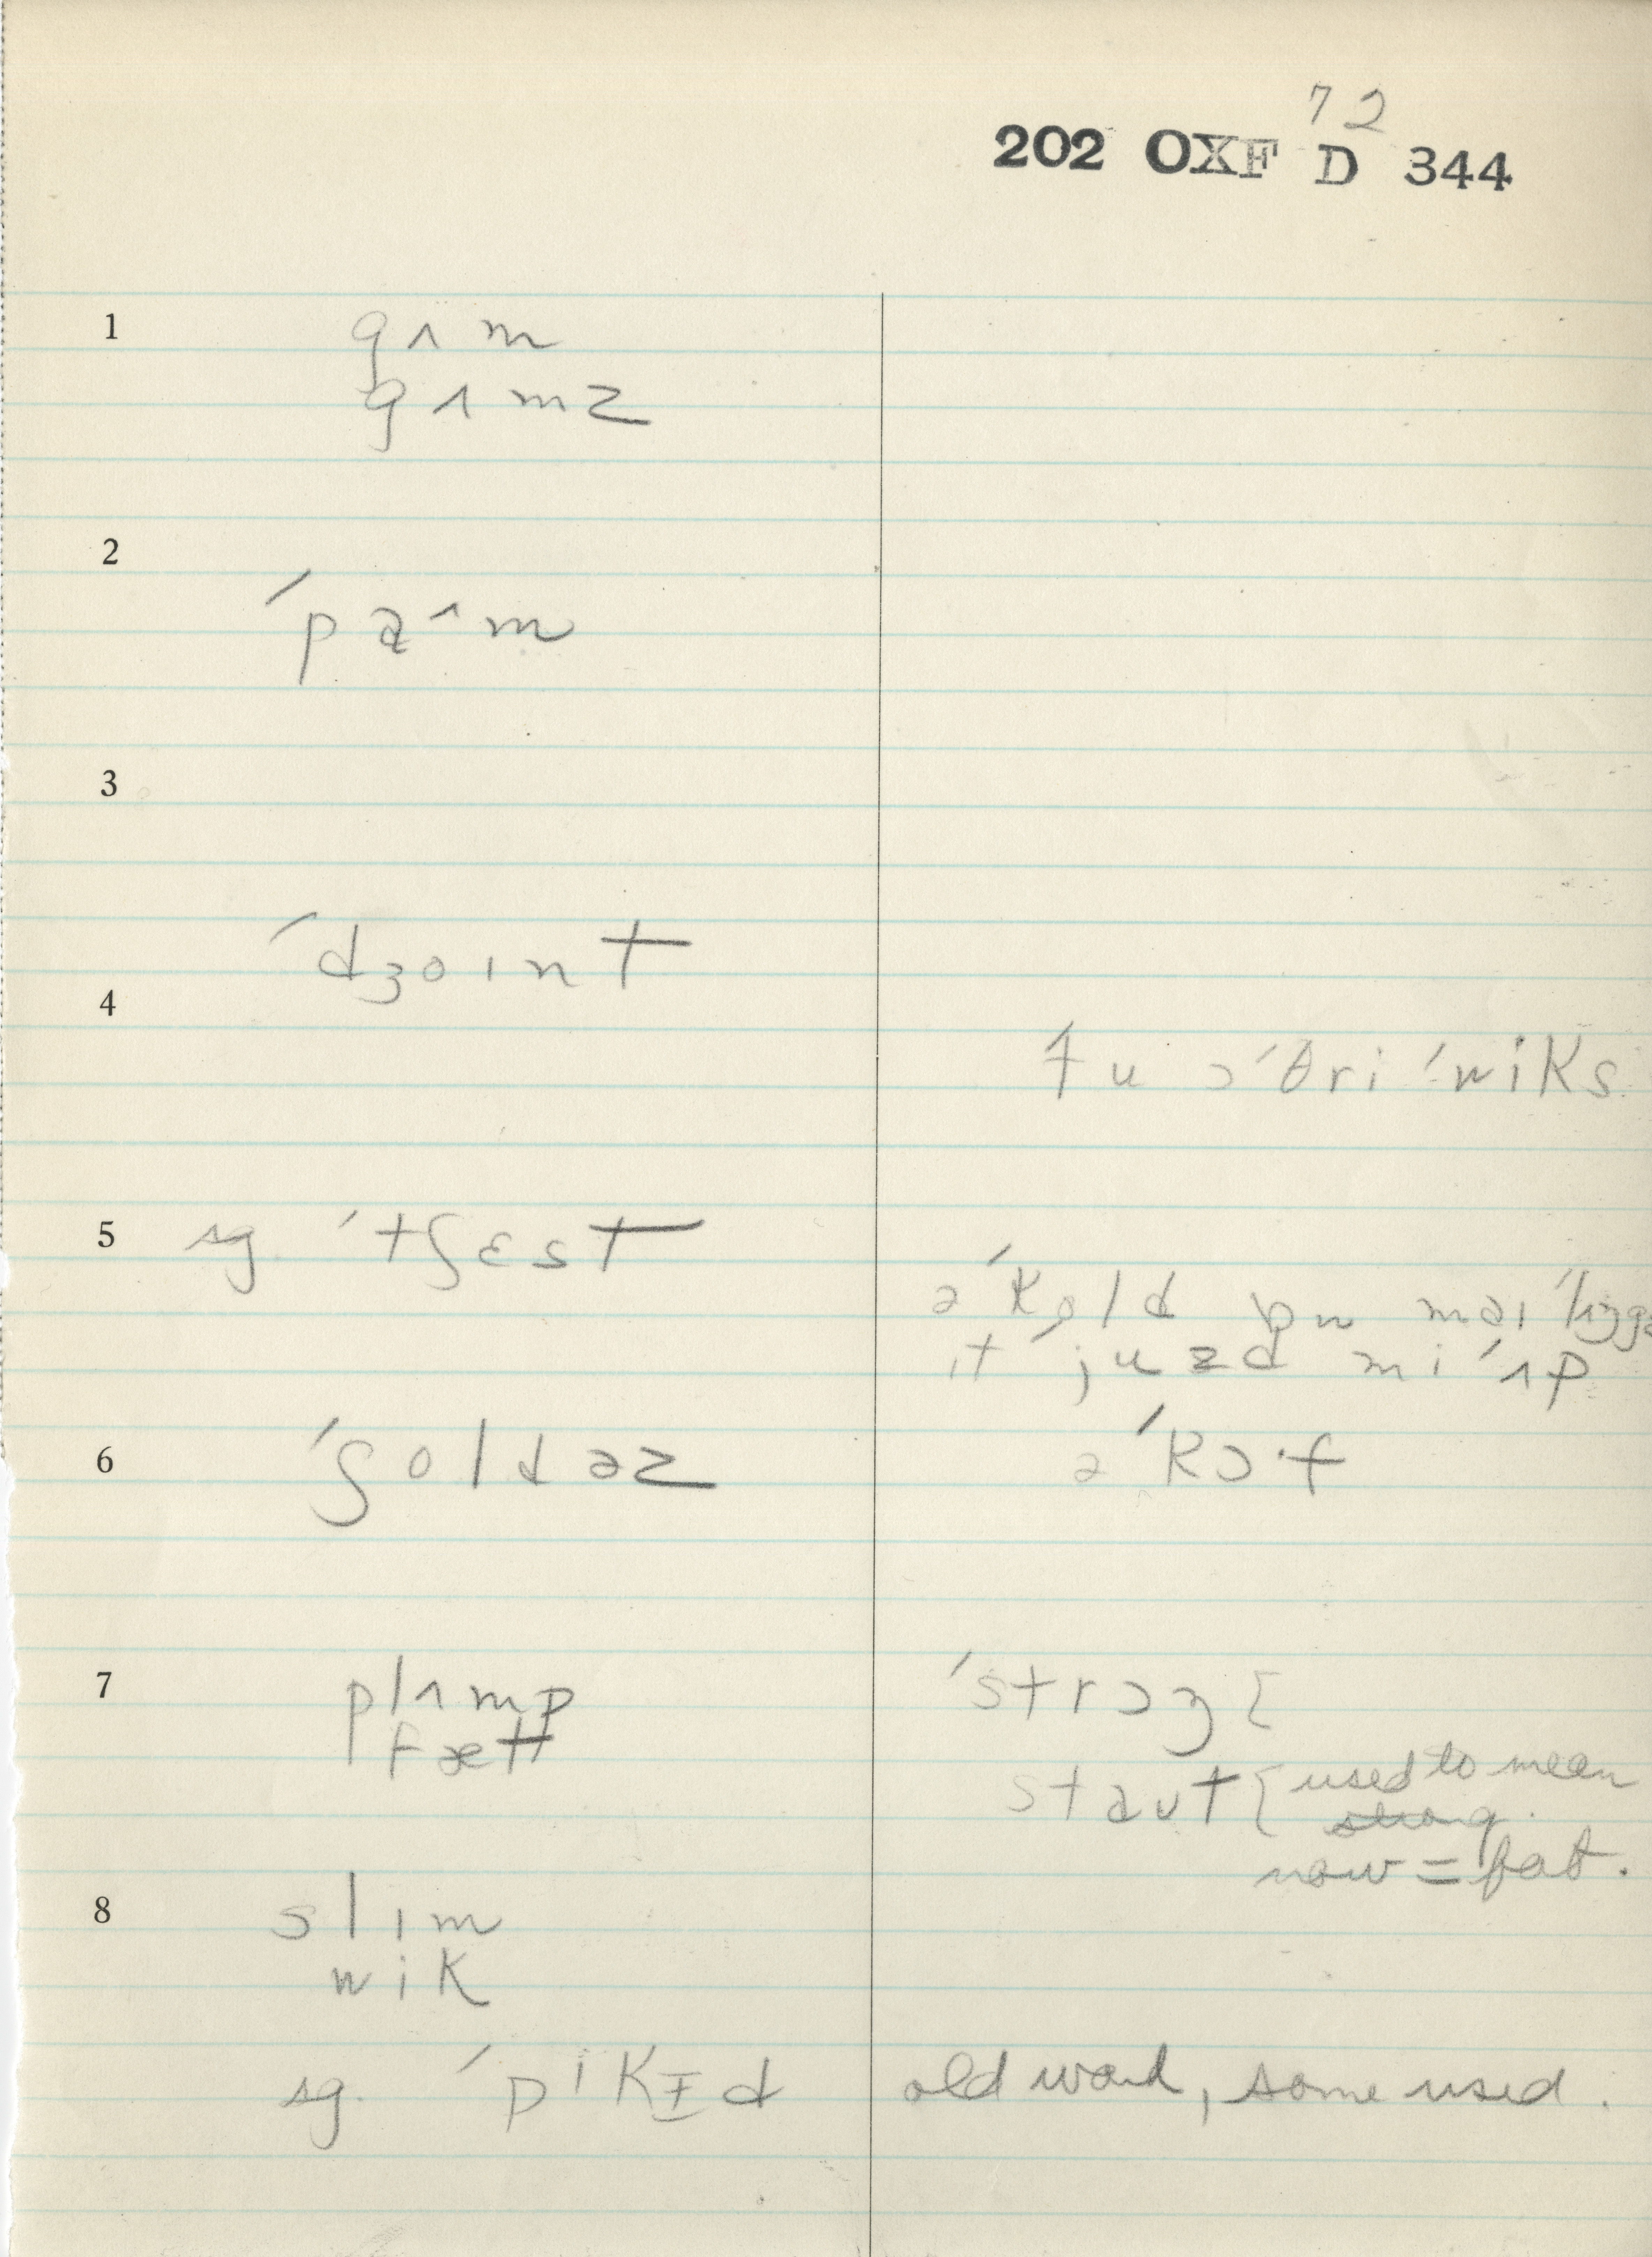 72
202 OXF D 344
1 gʌm
gʌmz
2 ˊpaˆm
3
ˊdʒoɪnt
4
tu ɔ ˊθri ˊwiks
5 sg. ˊtʃɛst
ə ˊkold ɒn maɪ
ɪt ˊjuzd mi ˊʌp
6 ˊʃoldəz ə ˊkɔ·f
7 plʌmp ˊstrɔŋ {
fætt
staʊt { used to mean
strong.
now = fat.
8 slɪm
wik
sg. ˊpikɪd old word, some used.